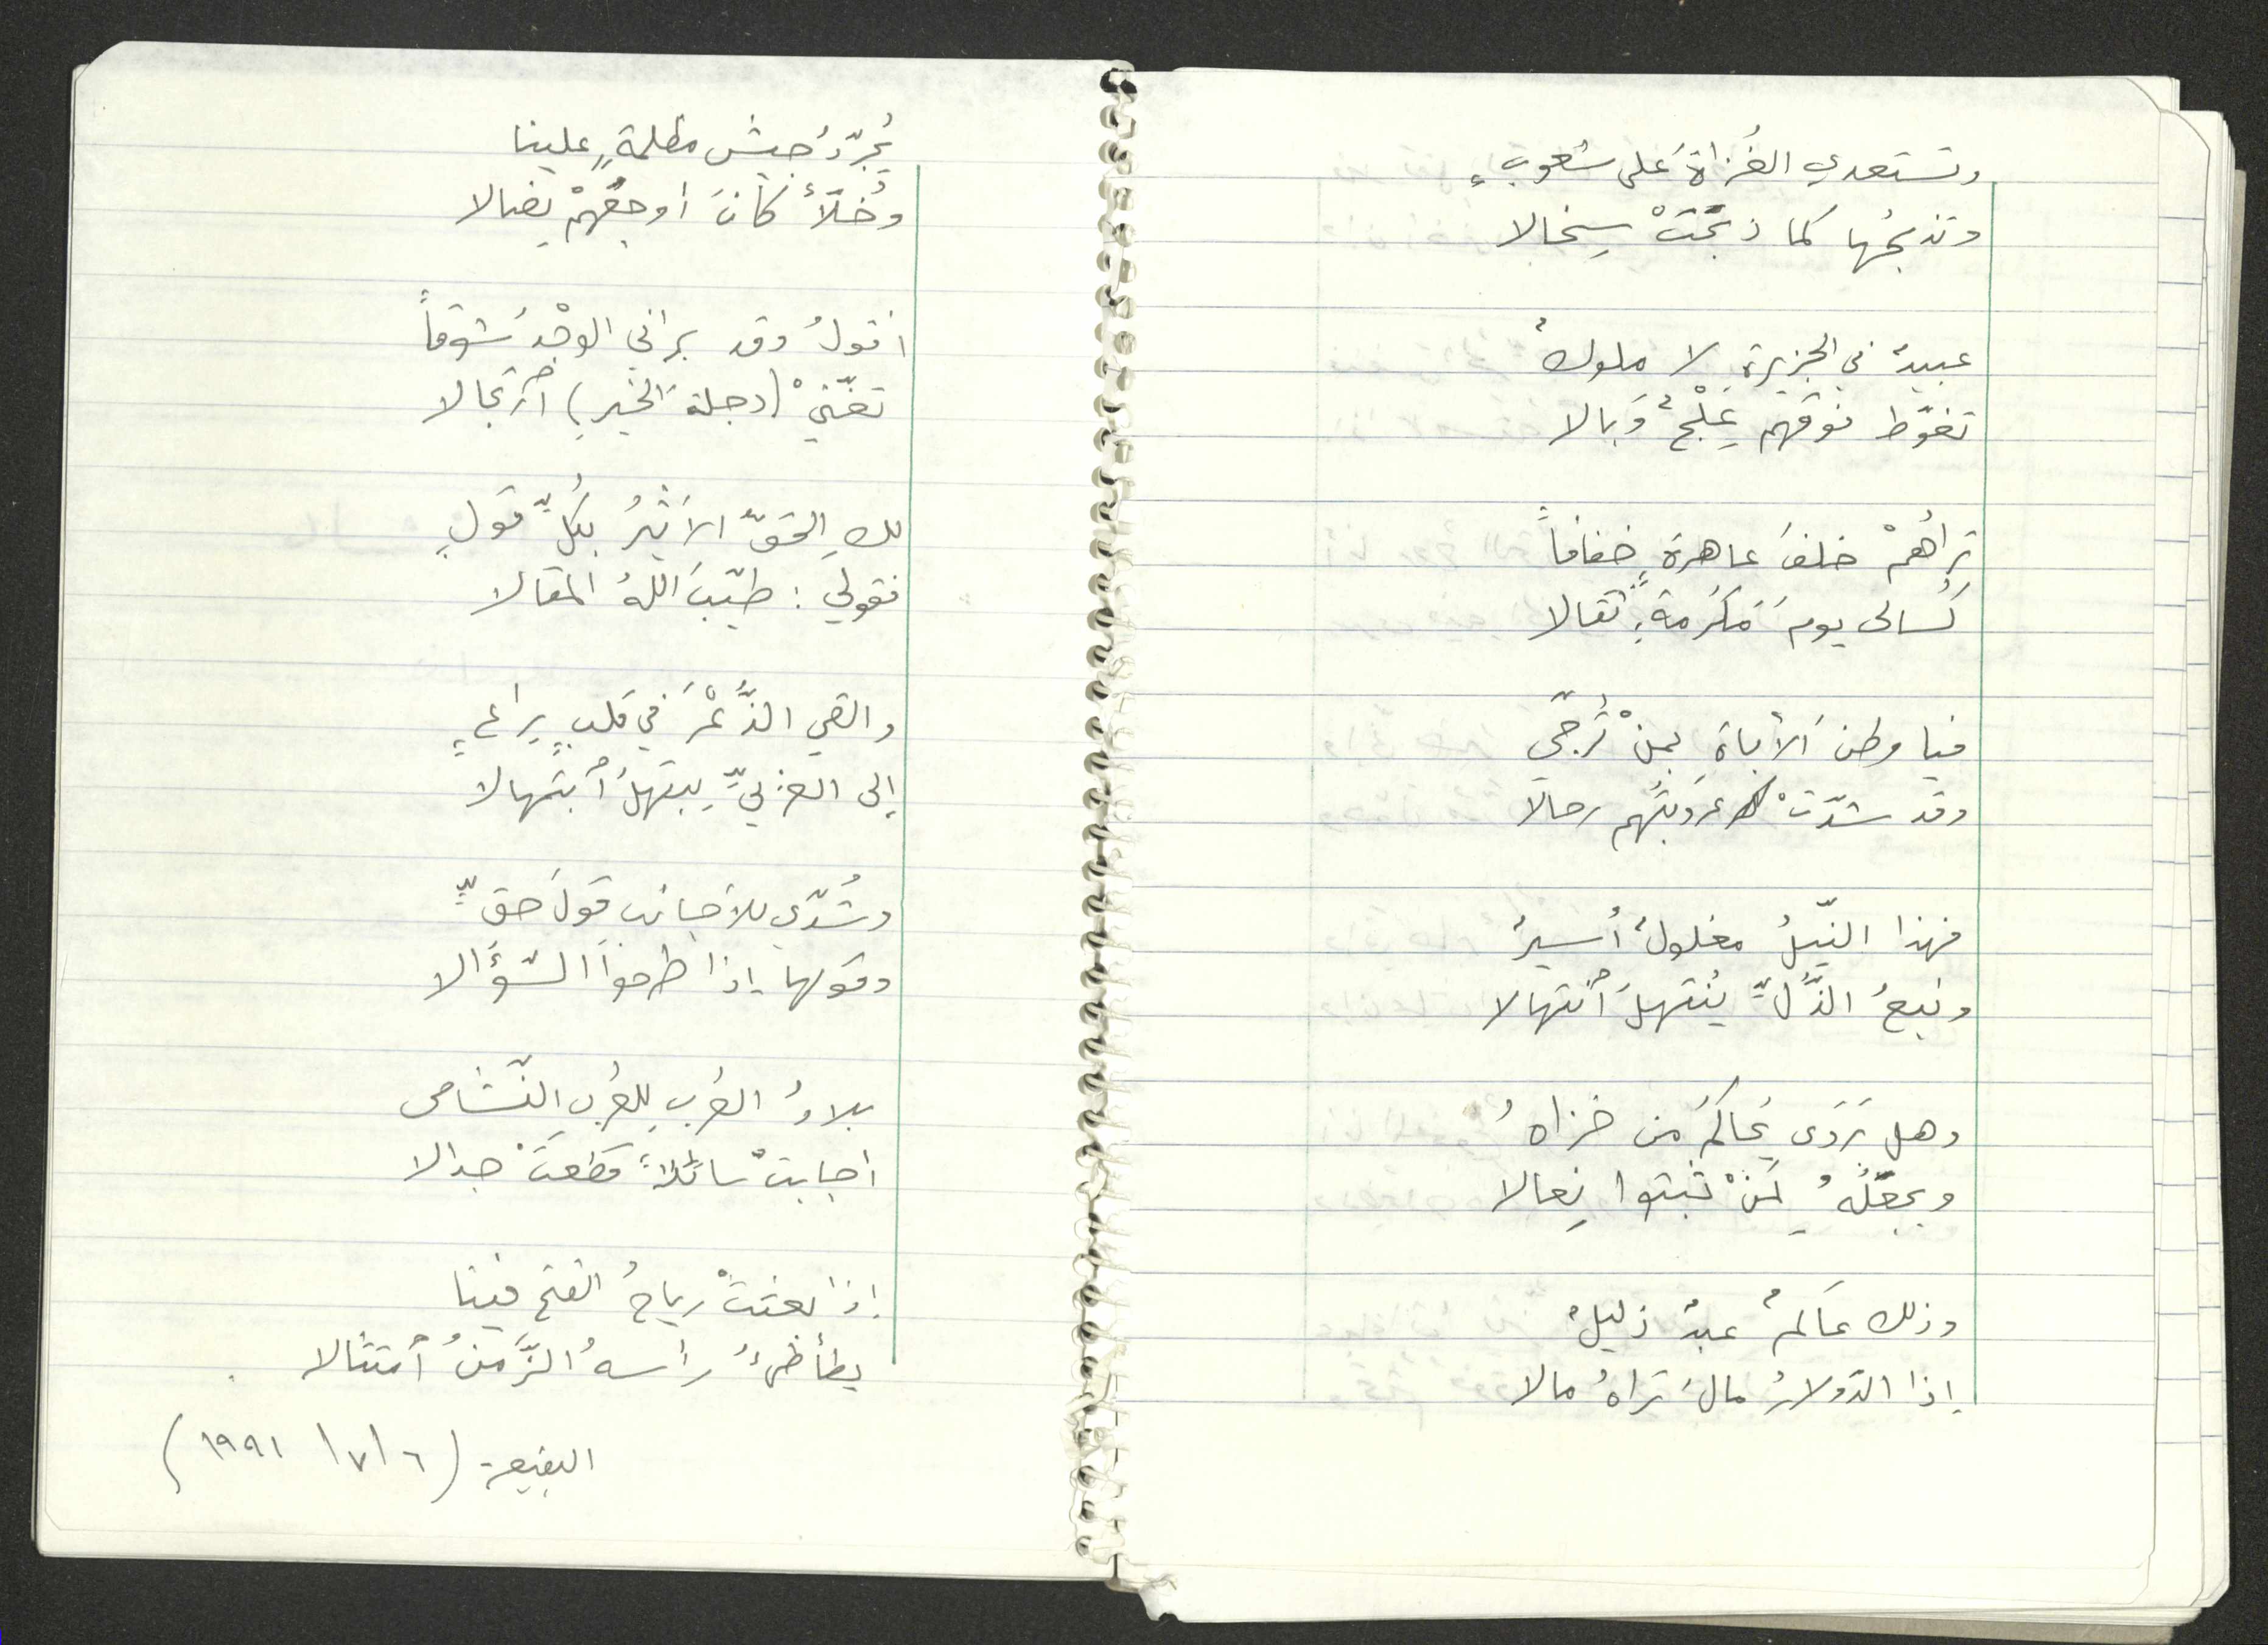 وتستعدي الغُزاةَ على شعوبٍ
وتذبحُها كما ذبحَتْ سِخالا
عبيدٌ في الجزيرةِ لا ملوكٌ
تغوّط فوقَهم عِلْجٌ وَبالا
تراهُمْ خلفَ عاهرةٍ خفافاً
كُسالى يومَ مَكرُمةٍ ثقالا
فيا وطنَ الأباةِ بمنْ تُرجّي
وقد شدّتْ عروبتُهم رحالا
فهذا النّيلُ مغلولٌ أسيرٌ
ونبعُ الذُّلِّ يُنتهلُ أنتهالا
وهل تروَى يُحاكمُ من خزاهُ
ويجعلُهُ لمنْ ثبتوا نِعالا
وذلك عالمٌ عبدٌ ذليلٌ
إذا الدّولارُ مالَ تراهُ مالا
يُجرّدُ جيشَ مظلمةٍ علينا
وخُلّاً كانَ أوجعَهمْ نِضالا
أقولُ وقد براني الوجْدُ شوقاً
تغنّيْ (دجلةَ الخيرِ) أرتجالا
لكِ الحقّ الأثيرُ بكُلِّ قولٍ
فقولي : طيّبَ اللهُ المقالا
والقي الذُّعْرَ في قلبٍ يراعٍ
إلى الغربيِّ يبتهلُ أبتهالا
وشُدّي للأجانبِ قولَ حقٍّ
وقولها إذا طرحوا السّؤالا
بلادُ العُربِ للعُربِ النّشامى
اجابتْ سائلاً قطعَتْ جدالا
إذا بعثتْ رياحُ الفتحِ فينا
يطأطئُ رأسهُ الزَّمنُ أمتثالا .
البقيعة (٦ / ٧ / ١٩٩١)